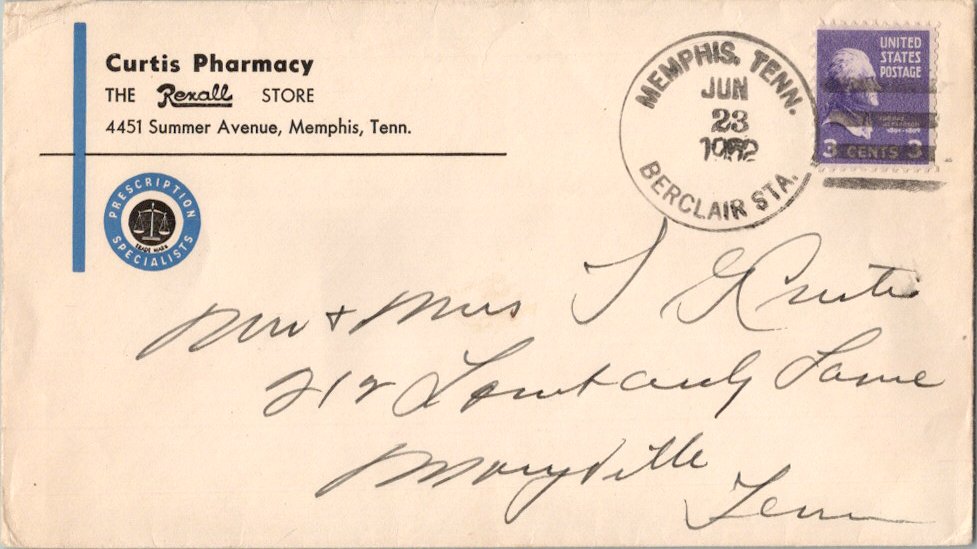 Curtis Pharmacy
THE Rexall STORE
4451 Summer Avenue, Memphis, Tenn.
PRESCRIPTION SPECIALISTS
TRADE MARK
MEMPHIS, TENN.
JUN
23
1952
BERCLAIR STA.
UNITED
STATES
POSTAGE
3 CENTS 3
Mr + Mrs
212 Lane
Maryville
Tenn